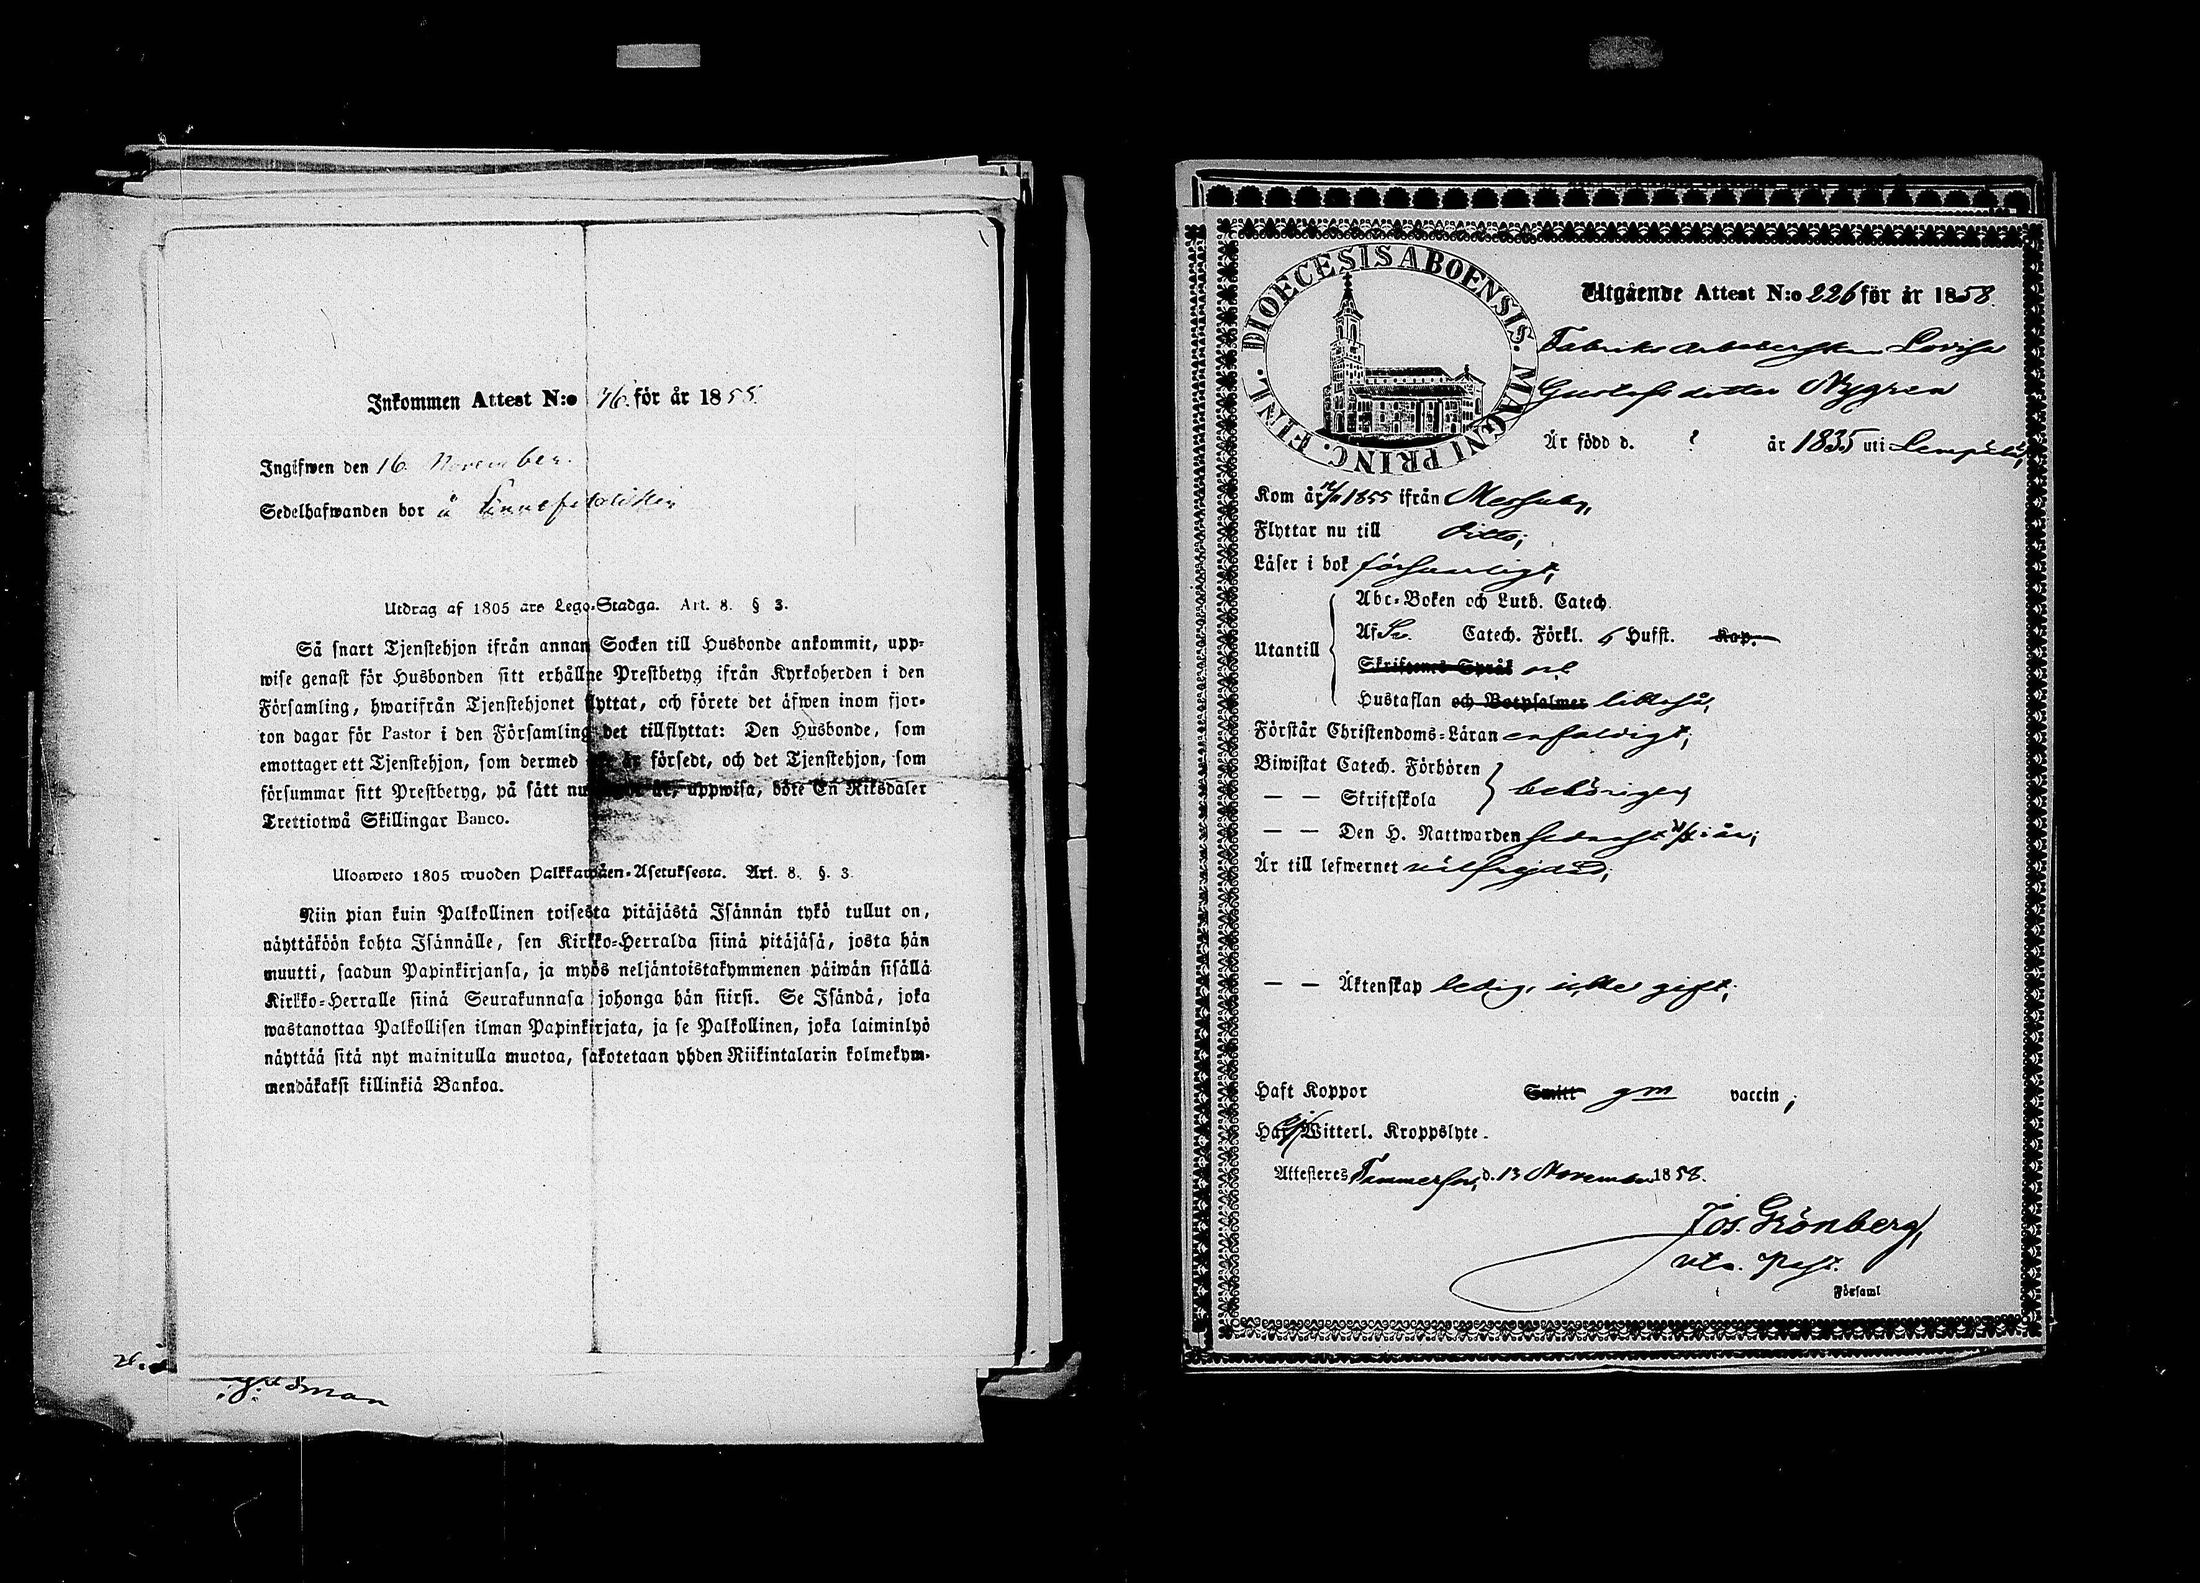 Inkommen Attest N:o 76. för år 1855.
Ingifwen den 16 November.
Sedelhafwanden bor å
Utdrag af 1805 års Lego-Stadga. Art. 8. § 3.
Så snart Tjenstehjon ifrån annan Socken till Husbonde ankommit, upp-
wise genast för Husbonden sitt erhållne Prestbetyg ifrån Kyrkoherden i den
Församling, hwarifrån Tjenstehjonet flyttat, och förete det äfwen inom fjor-
ton dagar för Pastor i den Församling det tillflyttat: Den Husbonde, som
emottager ett Tjenstehjon, som dermed försedt, och det Tjenstehjon, som
försummar sitt Prestbetyg, på sätt nu är, uppwisa, böte En Riksdaler
Trettiotwå Skillingar Banco.
Ulosweto 1805 wuoden Palkkawäen-Asetuksesta. Art. 8. §. 3.
Niin pian kuin Palkollinen toisesta pitäjästä Isännän tykö tullut on,
näyttäköön kohta Isännälle, sen Kirkko-Herralda siinä pitäjäsä, josta hän
muutti, saadun Papinkirjansa, ja myös neljäntoistakymmenen päiwän sisällä
Kirkko-Herralle siinä Seurakunnasa johonga hän siirsi. Se Isändä, joka
wastanottaa Palkollisen ilman Papinkirjata, ja se Palkollinen, joka laiminlyö
näyttää sitä nyt mainitulla muotoa, sakotetaan yhden Riikintalarin kolmekym-
mendäkaksi killinkiä Bankoa.
DIOECESIS ABOENSIS. MAGNI PRINC. FINL.
Utgående Attest N:o 226 för år 1858.
Fabriks arbeterskan Lovisa
Gustafsdotter Nygren
Är född d. ? år 1835 uti Lempälä,
Kom år 12/11 1855 ifrån Messuby,
Flyttar nu till ditto;
Läser i bok försvarligt,
Abc-Boken och Luth. Catech.
Utantill
Af Sv. Catech. Förkl. 6 Hufst. Kap.
Skriftenes Språk
Hustaflan och Botpsalmer likaså,
Förstår Christendoms-Läran enfaldigt;
Biwistat Catech. Förhören
— — Skriftskola
behörigen
— — Den H. Nattwarden senast i år;
Är till lefwernet välfrejdad;
— — Äktenskap ledig, icke gift;
Haft Koppor Smitt gm vaccin;
Har ej Witterl. Kroppslyte.
Attesteres Tammerfors, d. 13 November 1858.
Jos. Grönberg,
vice Past.
i Församl